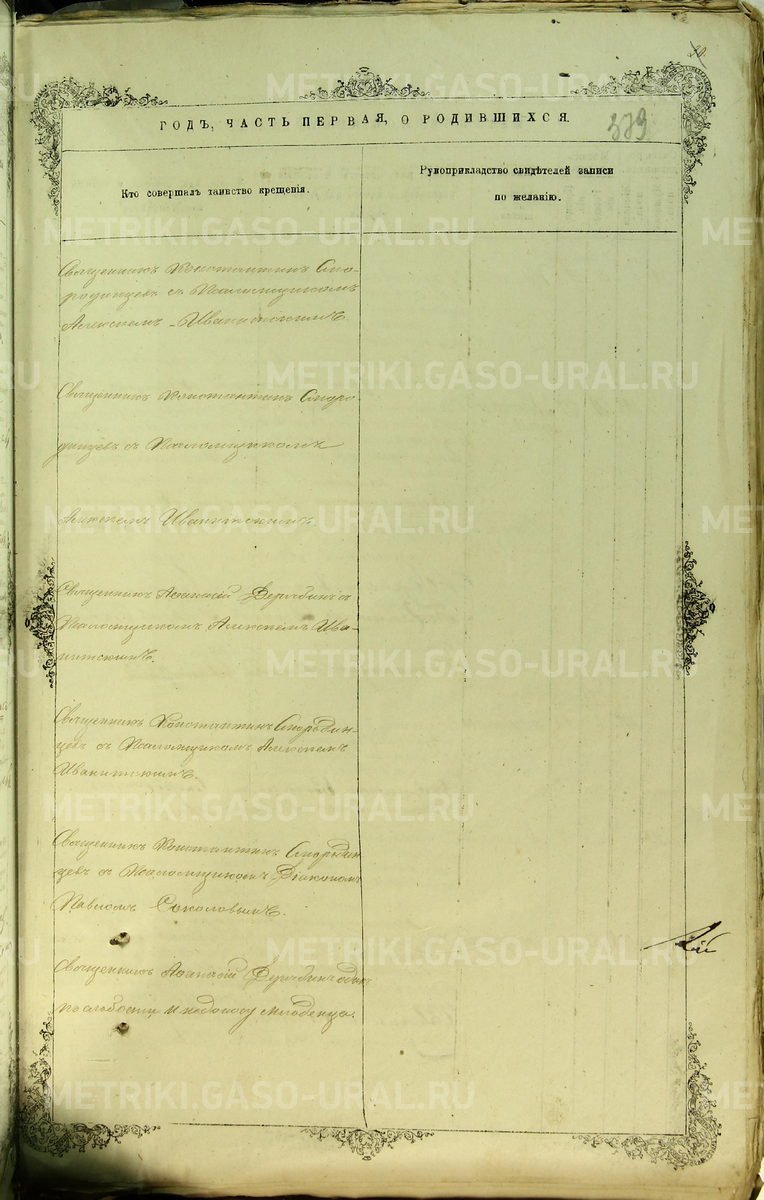 10
ГОДЪ, ЧАСТЬ ПЕРВАЯ, О РОДИВШИХСЯ.
379
Кто совершалъ таинство крещенія.
Рукоприкладство свидѣтелей записи
по желанію.
Священникъ Константинъ Смо-
родинцевъ съ Псаломщикомъ
Алексѣемъ Иваницкимъ.
Священникъ Константинъ Сморо
динцевъ съ Псаломщикомъ
Алексѣемъ Иваницкимъ.
Священникъ Аѳанасій Дерябинъ съ
Псаломщикомъ Алексѣемъ Ива-
ницкимъ.
Священникъ Константинъ Смородин-
цевъ съ Псаломщикомъ Алексѣемъ
Иваницкимъ.
Священникъ Константинъ Смородин
цевъ съ Псаломщикомъ Діакономъ
Павломъ Соколовымъ.
Священникъ Аѳанасій Дерябинъ одинъ
по слабости и недоносу младенца.
METRIKI.GASO-URAL.RU